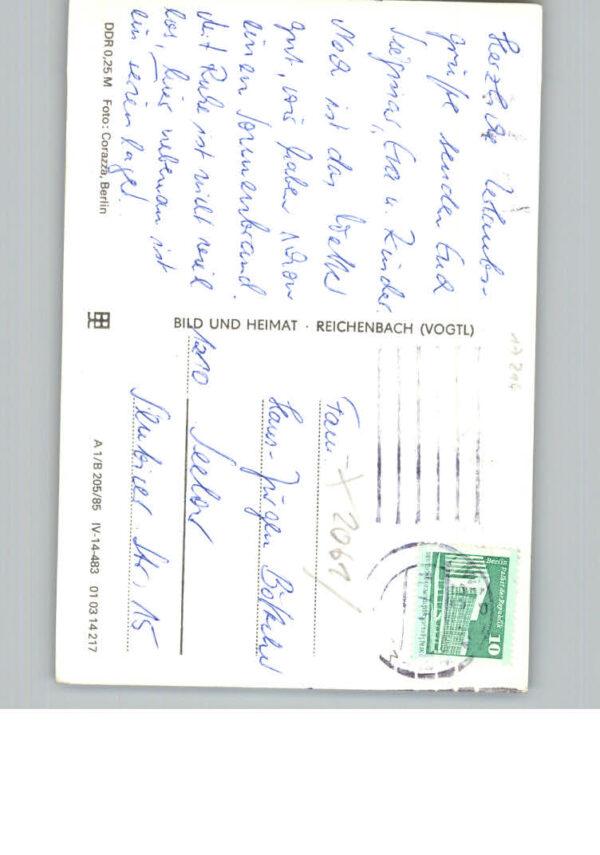 Herzliche Urlaubs-
grüße senden Euch
Siegmar, Eva u. Kinder.
Noch ist das Wetter
gut, wir haben schon
einen Sonnenbrand.
Mit Ruhe ist nicht viel
los, hier nebenan ist
ein Ferienlager.
DDR 0,25 M Foto: Corazza, Berlin
BILD UND HEIMAT · REICHENBACH (VOGTL)
Fam.
Hans-Jürgen
1210 Seelow
Str. 15
A 1/B 205/85 IV-14-483 01 03 14 217
Palast der Republik
Berlin
10
DDR